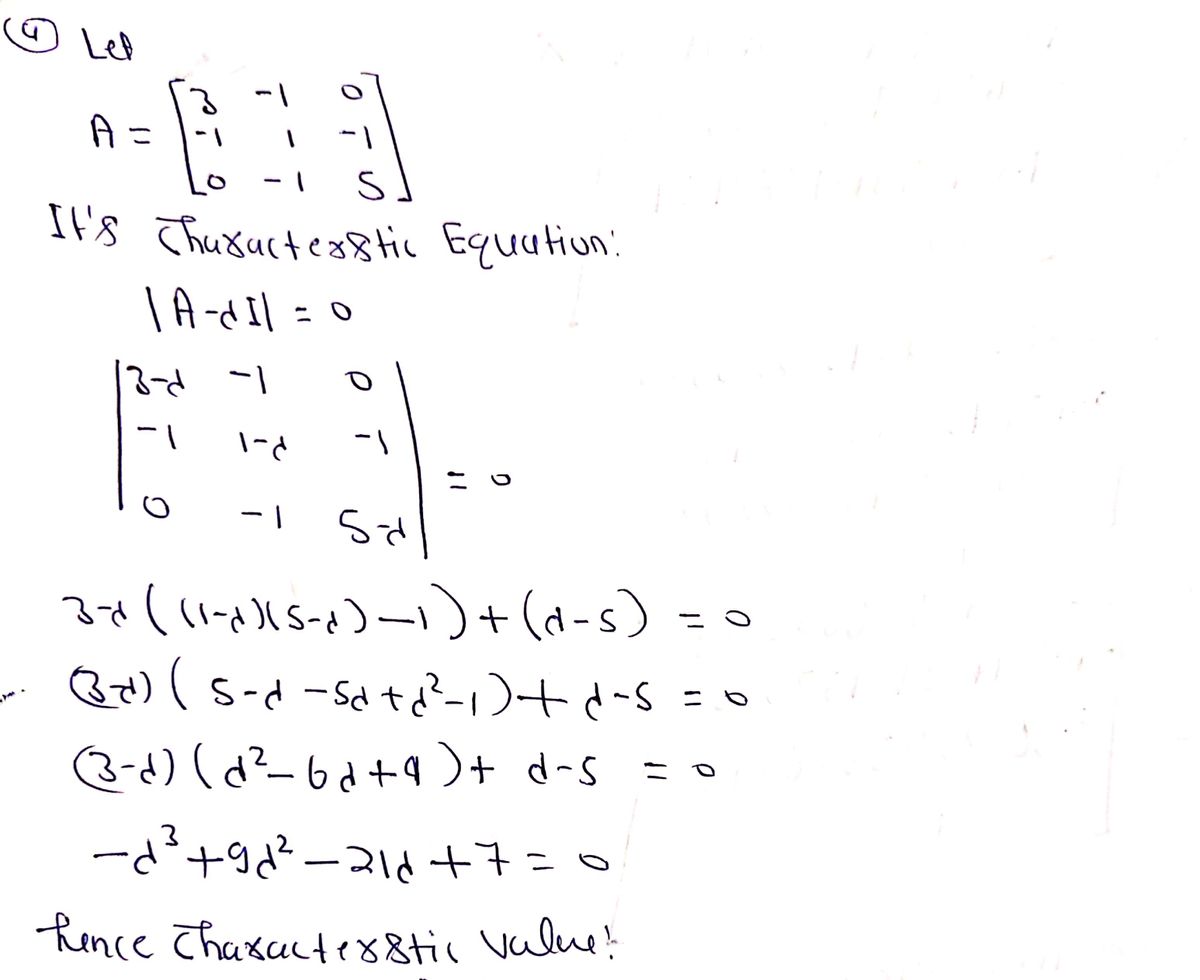 ④ Let
A = [3 -1 0
-1 1 -1
0 -1 5]
It's Characterstic Equation:
|A-dI| = 0
|3-d -1 0
-1 1-d -1
0 -1 5-d| = 0
3-d ( (1-d)(5-d) -1 ) + (d-5) = 0
(3-d) ( 5-d -5d + d² -1 ) + d-5 = 0
(3-d) ( d² - 6d + 4 ) + d-5 = 0
-d³ + 9d² - 21d + 7 = 0
hence Characterstic value: